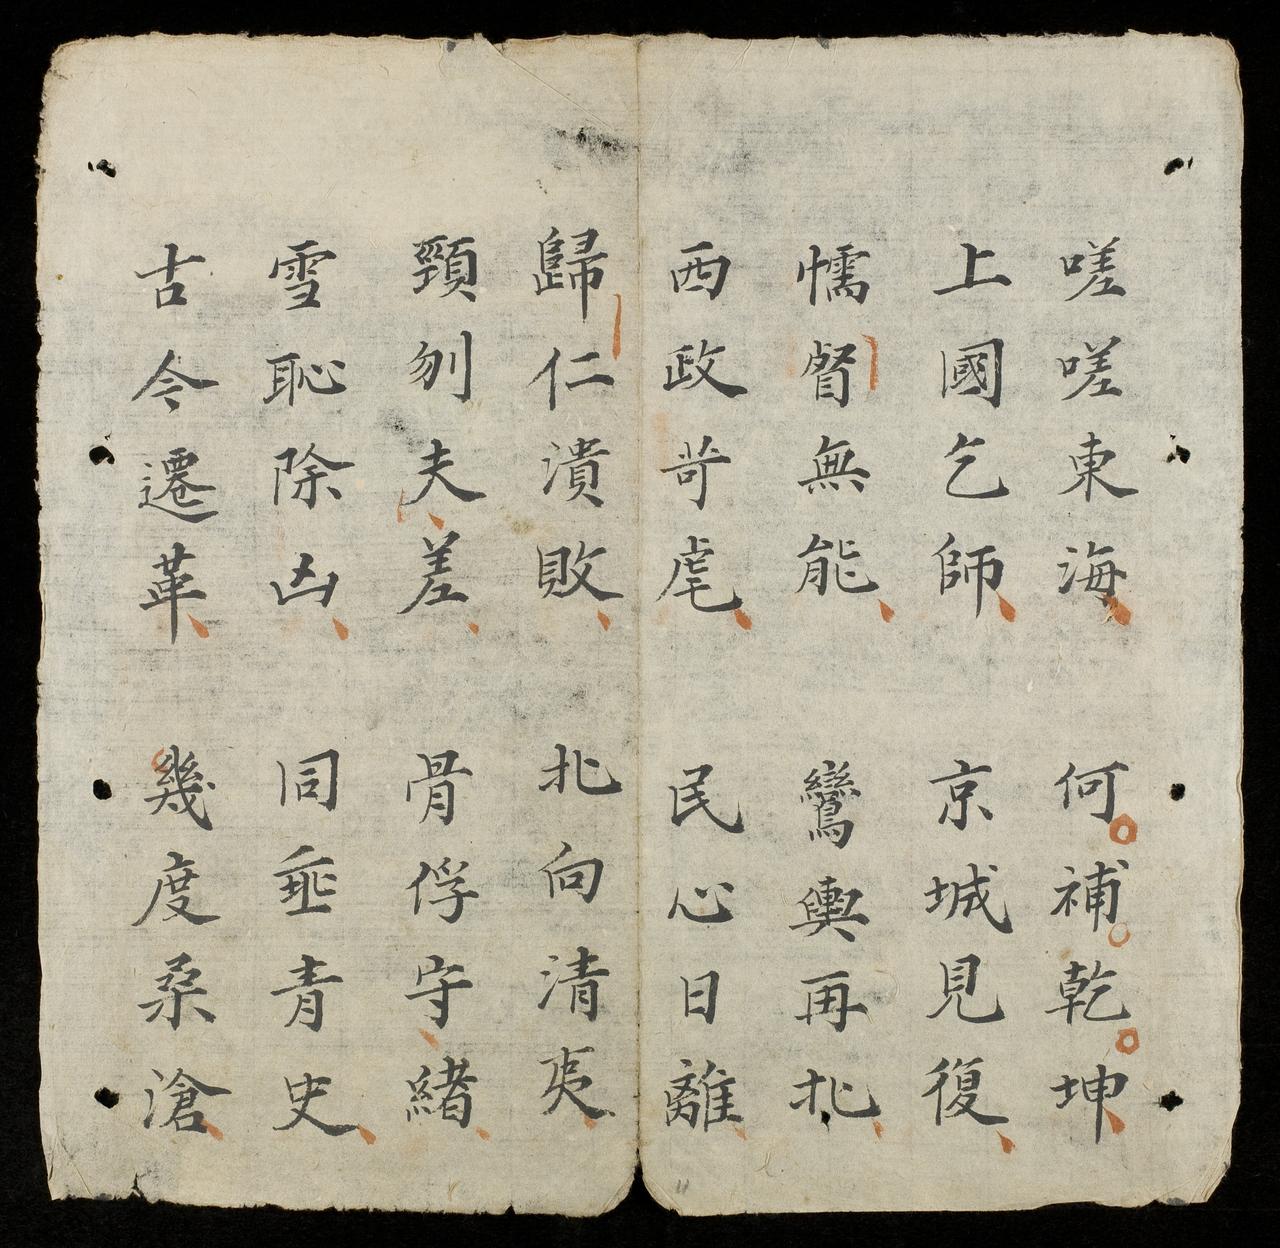 嗟嗟東海 何補乾坤
上國乞師 京城見復
懦督無能 鸞輿再北
西政苛虐 民心日離
歸仁潰敗 北向清夷
頸刎夫差 骨俘守緒
雪恥除凶 同垂青史
古今遷革 幾度桑滄